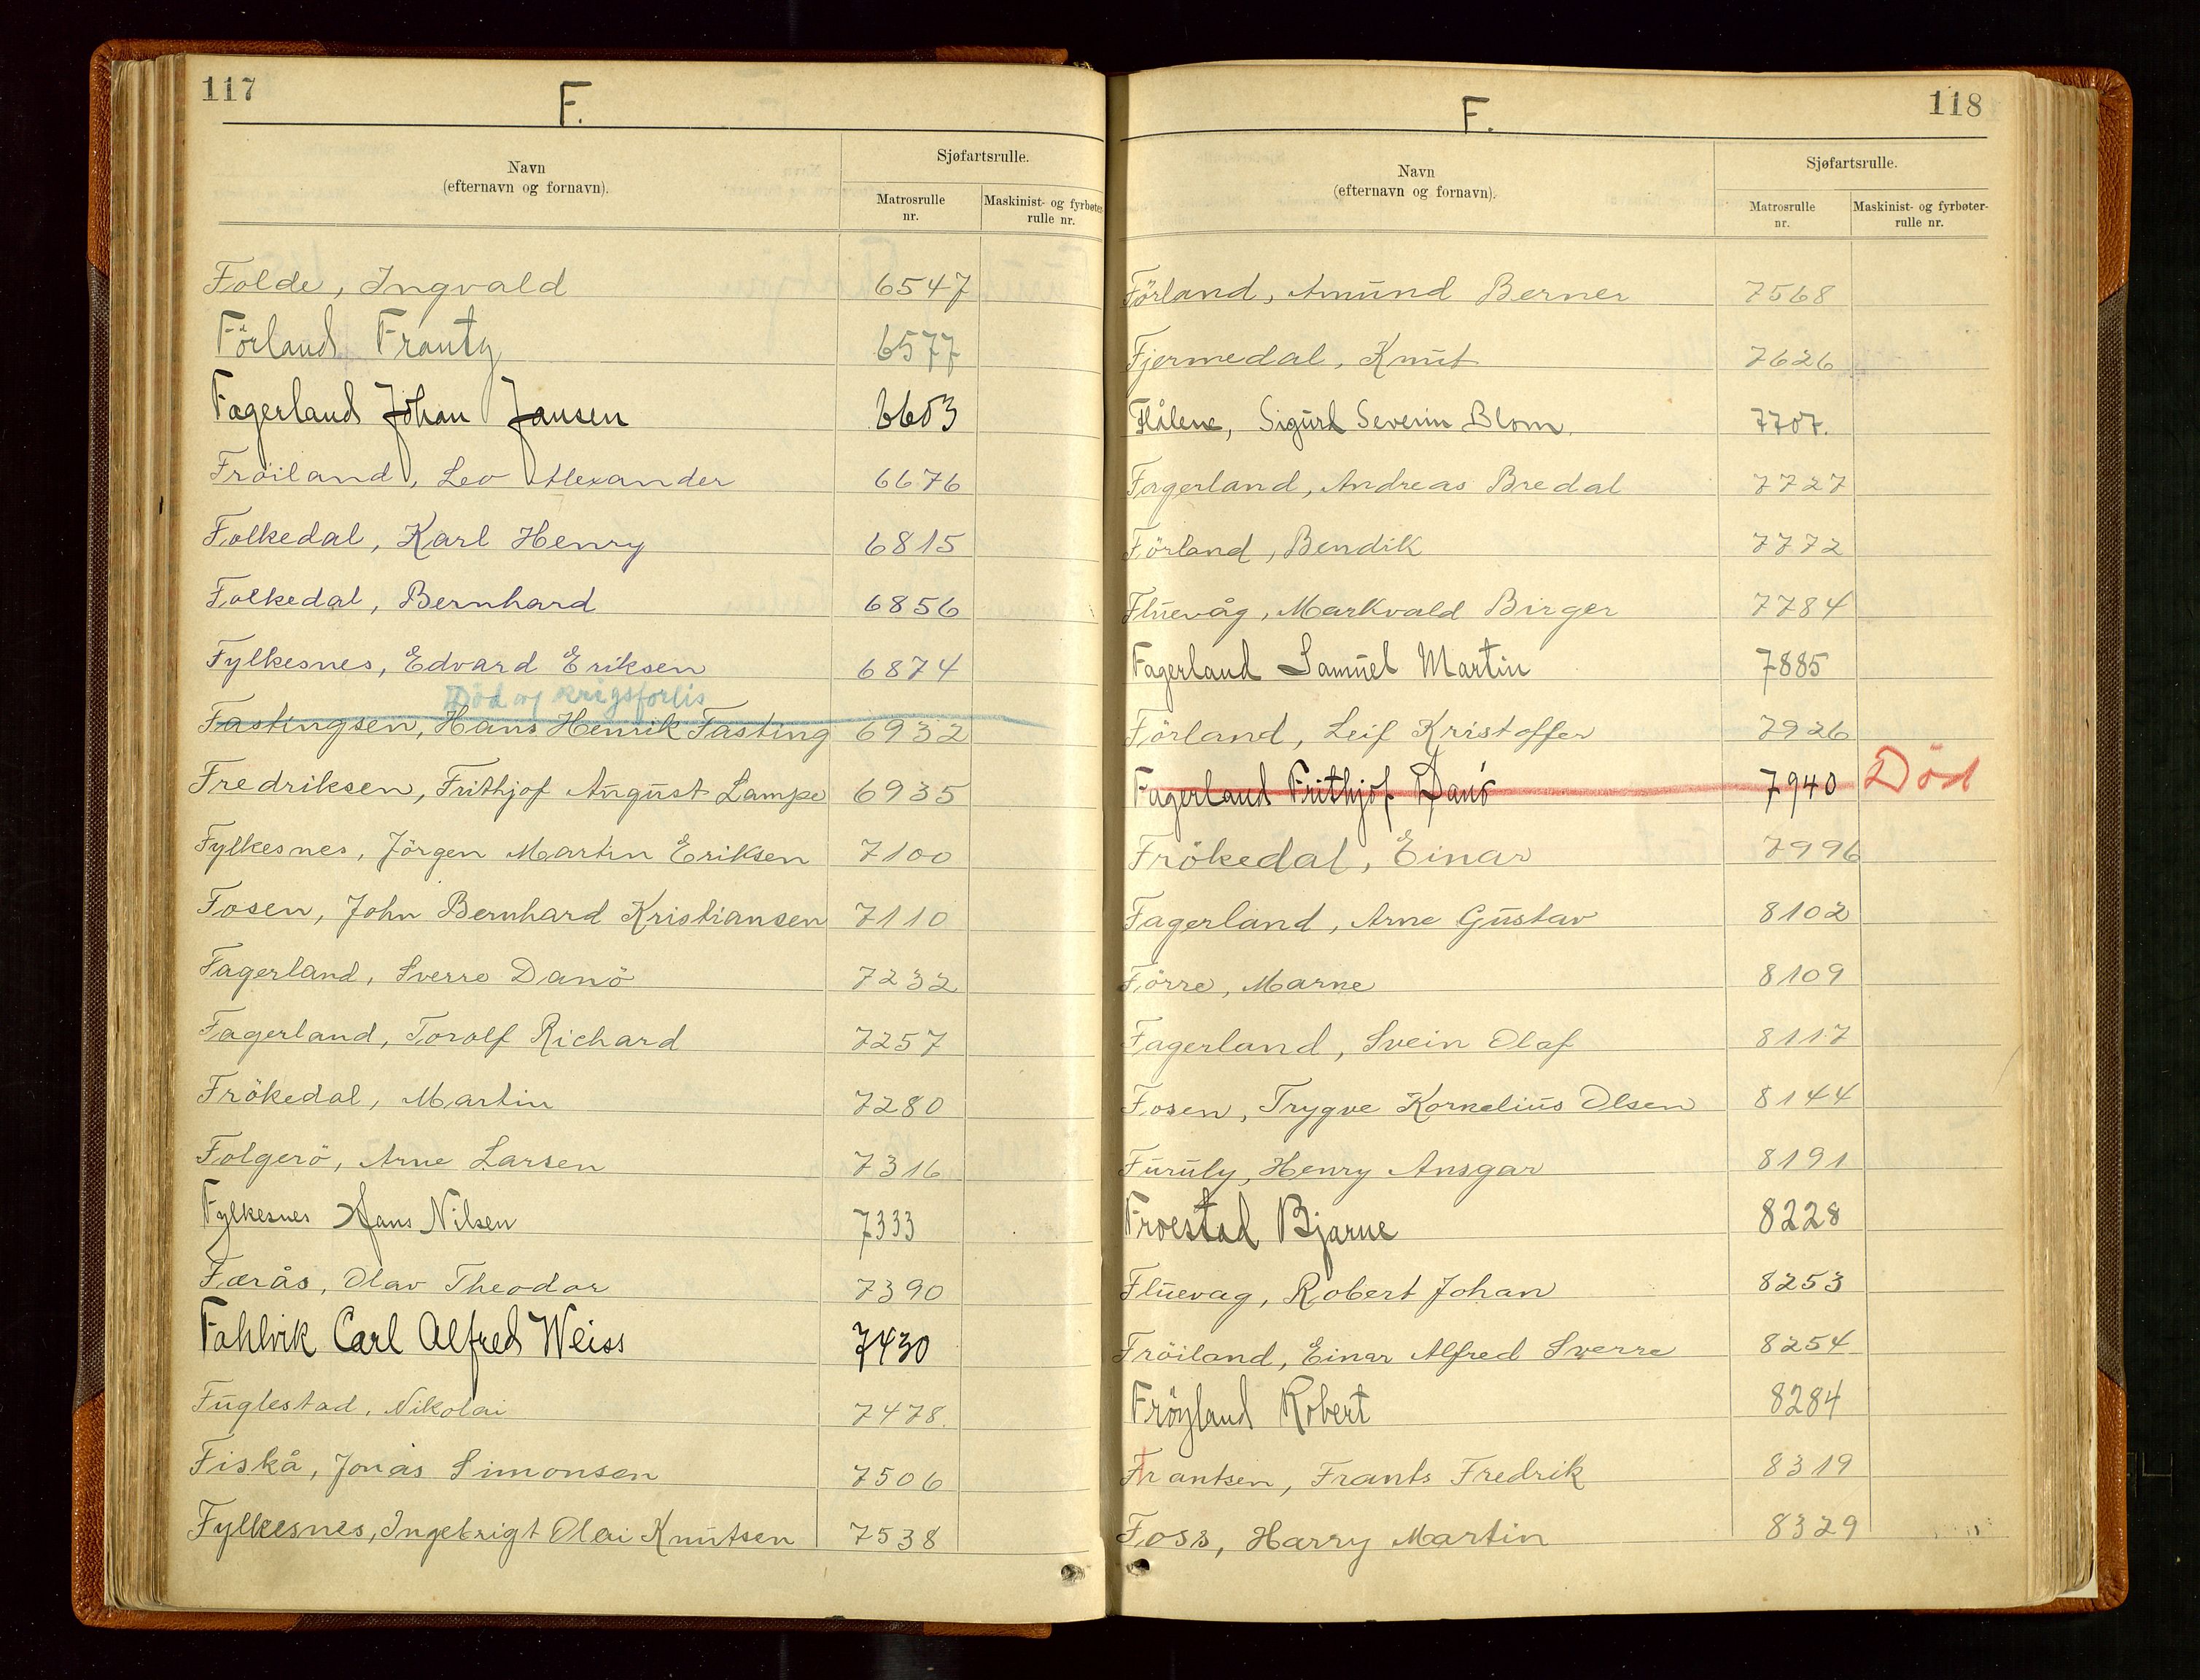 117
F.
Navn
(efternavn og fornavn).
Sjøfartsrulle.
Matrosrulle nr.
Maskinist- og fyrbøter- rulle nr.
Folde, Ingvald 6547
Förland Frantz 6577
Fagerland Johan Jansen 6603
Fröiland, Leo Alexander 6676
Folkedal, Karl Henry 6815
Folkedal, Bernhard 6856
Fylkesnes, Edvard Eriksen 6874
Död v/ krigsforlis
Fastingsen, Hans Henrik Fasting 6932
Fredriksen, Frithjof August Lampe 6935
Fylkesnes, Jörgen Martin Eriksen 7100
Fosen, John Bernhard Kristiansen 7110
Fagerland, Sverre Danö 7232
Fagerland, Torolf Richard 7257
Frökedal, Martin 7280
Folgerö, Arne Larsen 7316
Fylkesnes Hans Nilsen 7333
Færås, Olav Theodor 7390
Fahlvik Carl Alfred Weiss 7430
Fuglestad, Nikolai 7478.
Fiskå, Jonas Simonsen 7506
Fylkesnes, Ingebrigt Olai Knutsen 7538
118
F.
Navn
(efternavn og fornavn).
Sjøfartsrulle.
Matrosrulle nr.
Maskinist- og fyrbøter- rulle nr.
Förland, Amund Berner 7568
Fjermedal, Knut 7626
Flålene, Sigurd Severin Blom. 7707.
Fagerland, Andreas Bredal 7727
Förland, Bendik 7772
Fluevåg, Markvald Birger 7784
Fagerland Samuel Martin 7885
Förland, Leif Kristoffer 7926
Fagerland Frithjof Danö 7940 Död
Frökedal, Einar 7996
Fagerland, Arne Gustav 8102
Förre, Marne 8109
Fagerland, Svein Olaf 8117
Fosen, Trygve Kornelius Olsen 8144
Furuly, Henry Ansgar 8191
Froestad Bjarne 8228
Fluevag, Robert Johan 8253
Fröiland, Einar Alfred Sverre 8254
Fröyland Robert 8284
Frantsen, Frants Fredrik 8319
Foss, Harry Martin 8329